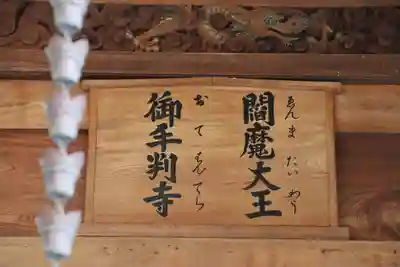 閻魔大王
ゑんまたいわう
御手判寺
おてはんてら